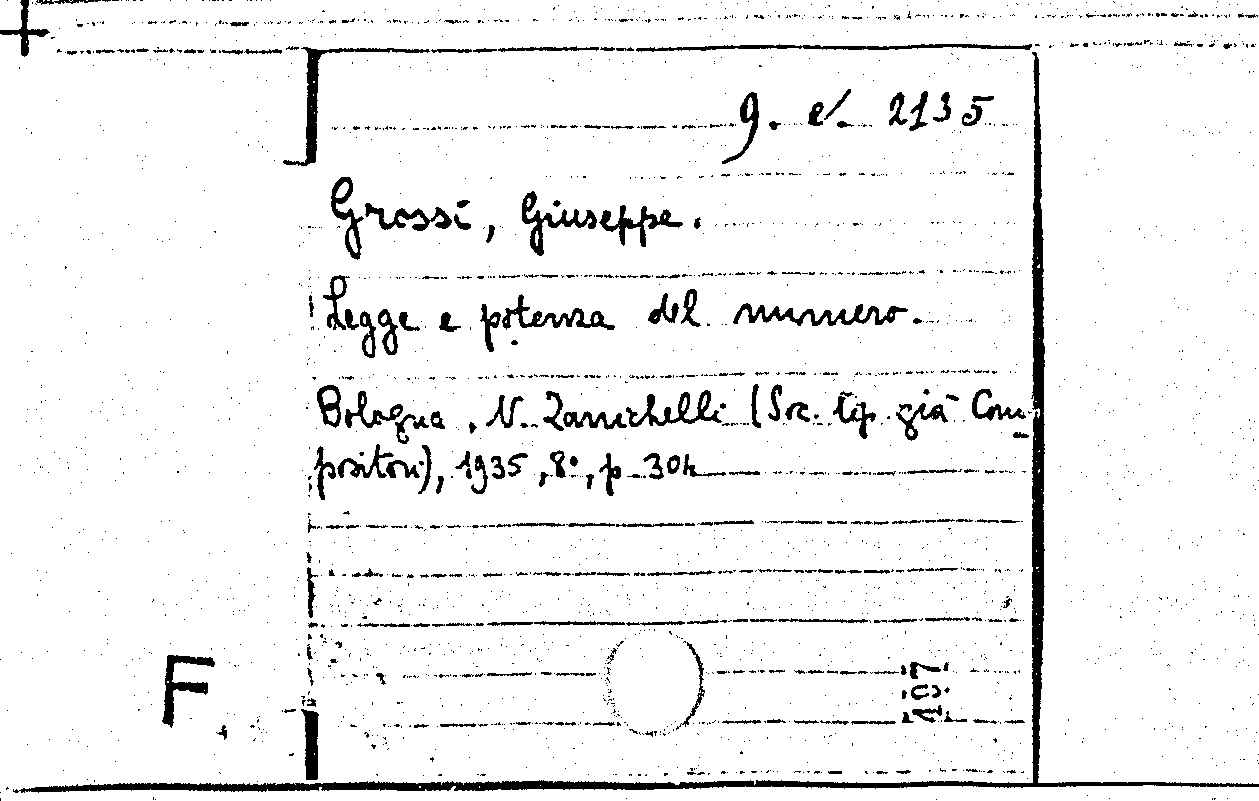 9. e'. 2135
Grossi, Giuseppe.
Legge e potenza del numero.
Bologna, N. Zanichelli (Soc. tip. già Com-
positori), 1935, 8°, p. 304
107
F.